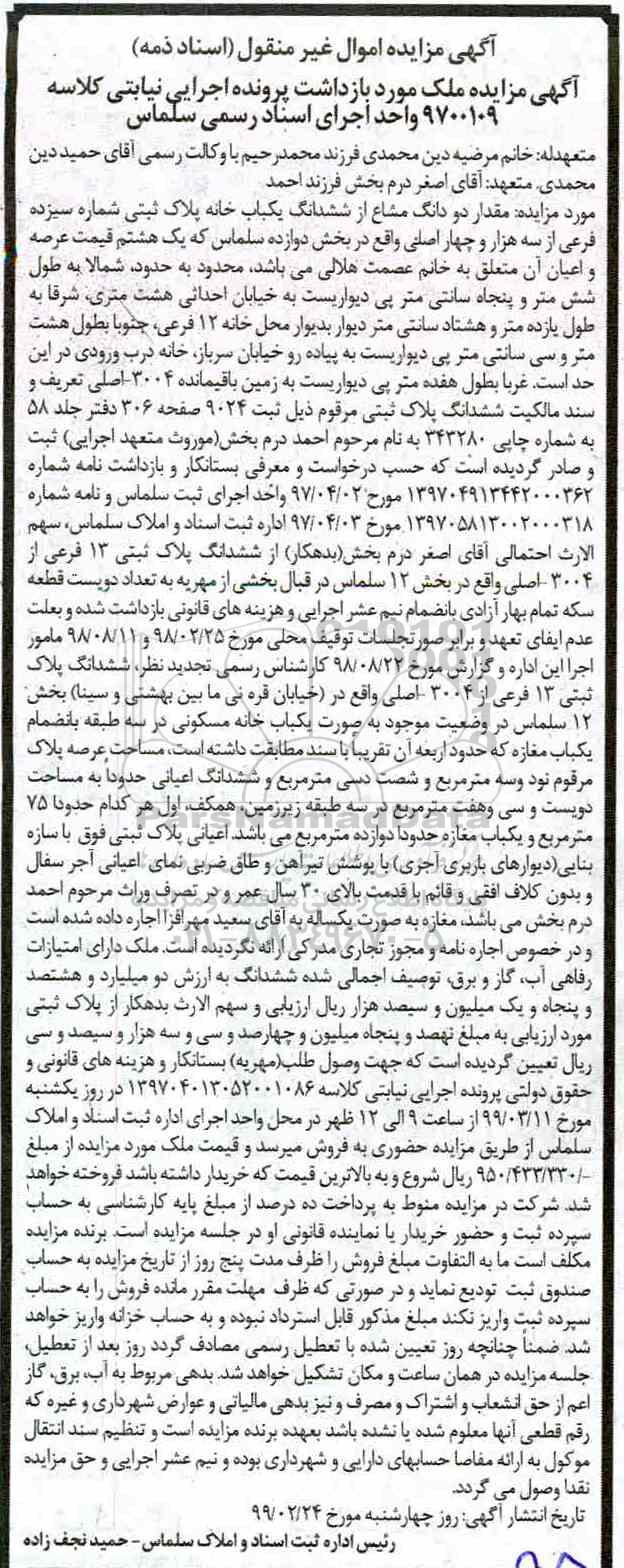 آگهی مزایده اموال غیر منقول (اسناد ذمه)
آگهی مزایده ملک مورد بازداشت پرونده اجرایی نیابتی کلاسه
۹۷۰۰۱۰۹ واحد اجرای اسناد رسمی سلماس
متعهدله: خانم مرضیه دین محمدی فرزند محمدرحیم با وکالت رسمی آقای حمید دین
محمدی. متعهد: آقای اصغر درم بخش فرزند احمد
مورد مزایده: مقدار دو دانگ مشاع از ششدانگ یکباب خانه پلاک ثبتی شماره سیزده
فرعی از سه هزار و چهار اصلی واقع در بخش دوازده سلماس که یک هشتم قیمت عرصه
و اعیان آن متعلق به خانم عصمت هلالی می باشد، محدود به حدود، شمالا به طول
شش متر و پنجاه سانتی متر پی دیواریست به خیابان احداثی هشت متری، شرقا به
طول یازده متر و هشتاد سانتی متر دیوار بدیوار محل خانه ۱۲ فرعی، جنوبا بطول هشت
متر و سی سانتی متر پی دیواریست به پیاده رو خیابان سرباز، خانه درب ورودی در این
حد است. غربا بطول هفده متر پی دیواریست به زمین باقیمانده ۳۰۰۴-اصلی تعریف و
سند مالکیت ششدانگ پلاک ثبتی مرقوم ذیل ثبت ۹۰۲۴ صفحه ۳۰۶ دفتر جلد ۵۸
به شماره چاپی ۳۴۳۲۸۰ به نام مرحوم احمد درم بخش(موروث متعهد اجرایی) ثبت
و صادر گردیده است که حسب درخواست و معرفی بستانکار و بازداشت نامه شماره
۱۳۹۷۰۴۹۱۳۴۴۲۰۰۰۳۶۲ مورخ ۹۷/۰۴/۰۲ واحد اجرای ثبت سلماس و نامه شماره
۱۳۹۷۰۵۸۱۳۰۰۲۰۰۰۳۱۸ مورخ ۹۷/۰۴/۰۳ اداره ثبت اسناد و املاک سلماس، سهم
الارث احتمالی آقای اصغر درم بخش(بدهکار) از ششدانگ پلاک ثبتی ۱۳ فرعی از
۳۰۰۴-اصلی واقع در بخش ۱۲ سلماس در قبال بخشی از مهریه به تعداد دویست قطعه
سکه تمام بهار آزادی بانضمام نیم عشر اجرایی و هزینه های قانونی بازداشت شده و بعلت
عدم ایفای تعهد و برابر صورتجلسات توقیف محلی مورخ ۹۸/۰۲/۲۵ و ۹۸/۰۸/۱۱ مامور
اجرا این اداره و گزارش مورخ ۹۸/۰۸/۲۲ کارشناس رسمی تجدید نظر، ششدانگ پلاک
ثبتی ۱۳ فرعی از ۳۰۰۴-اصلی واقع در (خیابان قره نی ما بین بهشتی و سینا) بخش
۱۲ سلماس در وضعیت موجود به صورت یکباب خانه مسکونی در سه طبقه بانضمام
یکباب مغازه که حدود اربعه آن تقریبا با سند مطابقت داشته است، مساحت عرصه پلاک
مرقوم نود وسه مترمربع و شصت دسی مترمربع و ششدانگ اعیانی حدوداً به مساحت
دویست و سی وهفت مترمربع در سه طبقه زیرزمین، همکف، اول هر کدام حدودا ۷۵
مترمربع و یکباب مغازه حدودا دوازده مترمربع می باشد. اعیانی پلاک ثبتی فوق با سازه
بنایی(دیوارهای باربری آجری) با پوشش تیرآهن و طاق ضربی نمای اعیانی آجر سفال
و بدون کلاف افقی و قائم با قدمت بالای ۳۰ سال عمر و در تصرف وراث مرحوم احمد
درم بخش می باشد، مغازه به صورت یکساله به آقای سعید مهرافزا اجاره داده شده است
و در خصوص اجاره نامه و مجوز تجاری مدرکی ارائه نگردیده است. ملک دارای امتیازات
رفاهی آب، گاز و برق، توصیف اجمالی شده ششدانگ به ارزش دو میلیارد و هشتصد
و پنجاه و یک میلیون و سیصد هزار ریال ارزیابی و سهم الارث بدهکار از پلاک ثبتی
مورد ارزیابی به مبلغ نهصد و پنجاه میلیون و چهارصد و سی و سه هزار و سیصد و سی
ریال تعیین گردیده است که جهت وصول طلب(مهریه) بستانکار و هزینه های قانونی و
حقوق دولتی پرونده اجرایی نیابتی کلاسه ۱۳۹۷۰۴۰۱۳۰۵۲۰۰۱۰۸۶ در روز یکشنبه
مورخ ۹۹/۰۳/۱۱ از ساعت ۹ الی ۱۲ ظهر در محل واحد اجرای اداره ثبت اسناد و املاک
سلماس از طریق مزایده حضوری به فروش میرسد و قیمت ملک مورد مزایده از مبلغ
۹۵۰/۴۳۳/۳۳۰/- ریال شروع و به بالاترین قیمت که خریدار داشته باشد فروخته خواهد
شد. شرکت در مزایده منوط به پرداخت ده درصد از مبلغ پایه کارشناسی به حساب
سپرده ثبت و حضور خریدار یا نماینده قانونی او در جلسه مزایده است. برنده مزایده
مکلف است ما به التفاوت مبلغ فروش را ظرف مدت پنج روز از تاریخ مزایده به حساب
صندوق ثبت تودیع نماید و در صورتی که ظرف مهلت مقرر مانده فروش را به حساب
سپرده ثبت واریز نکند مبلغ مذکور قابل استرداد نبوده و به حساب خزانه واریز خواهد
شد. ضمناً چنانچه روز تعیین شده با تعطیل رسمی مصادف گردد روز بعد از تعطیل،
جلسه مزایده در همان ساعت و مکان تشکیل خواهد شد. بدهی مربوط به آب، برق، گاز
اعم از حق انشعاب و اشتراک و مصرف و نیز بدهی مالیاتی و عوارض شهرداری و غیره که
رقم قطعی آنها معلوم شده یا نشده باشد بعهده برنده مزایده است و تنظیم سند انتقال
موکول به ارائه مفاصا حسابهای دارایی و شهرداری بوده و نیم عشر اجرایی و حق مزایده
نقدا وصول می گردد.
تاریخ انتشار آگهی: روز چهارشنبه مورخ ۹۹/۰۲/۲۴
رئیس اداره ثبت اسناد و املاک سلماس- حمید نجف زاده
ParsNamadData